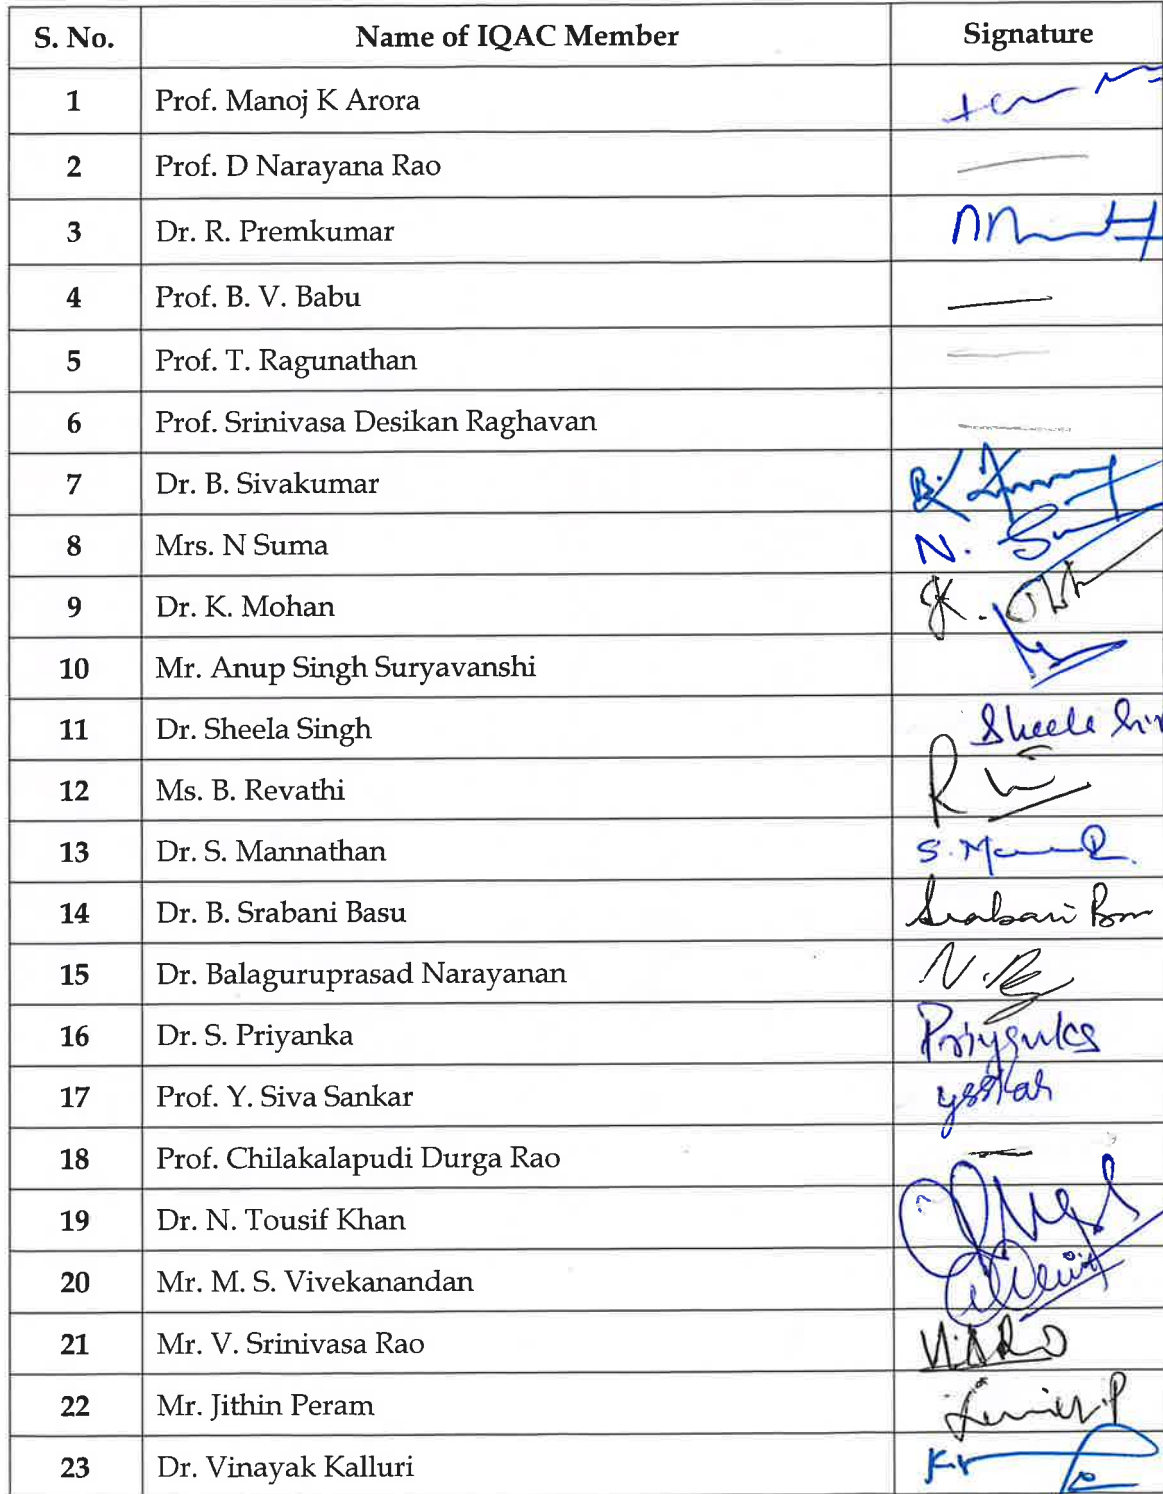 S. No. Name of IQAC Member Signature
1 Prof. Manoj K Arora
2 Prof. D Narayana Rao
3 Dr. R. Premkumar
4 Prof. B. V. Babu
5 Prof. T. Ragunathan
6 Prof. Srinivasa Desikan Raghavan
7 Dr. B. Sivakumar B.
8 Mrs. N Suma N.
9 Dr. K. Mohan K.
10 Mr. Anup Singh Suryavanshi
11 Dr. Sheela Singh Sheela
12 Ms. B. Revathi
13 Dr. S. Mannathan S.
14 Dr. B. Srabani Basu Srabani
15 Dr. Balaguruprasad Narayanan N.
16 Dr. S. Priyanka Priyanka
17 Prof. Y. Siva Sankar
18 Prof. Chilakalapudi Durga Rao
19 Dr. N. Tousif Khan
20 Mr. M. S. Vivekanandan
21 Mr. V. Srinivasa Rao
22 Mr. Jithin Peram
23 Dr. Vinayak Kalluri